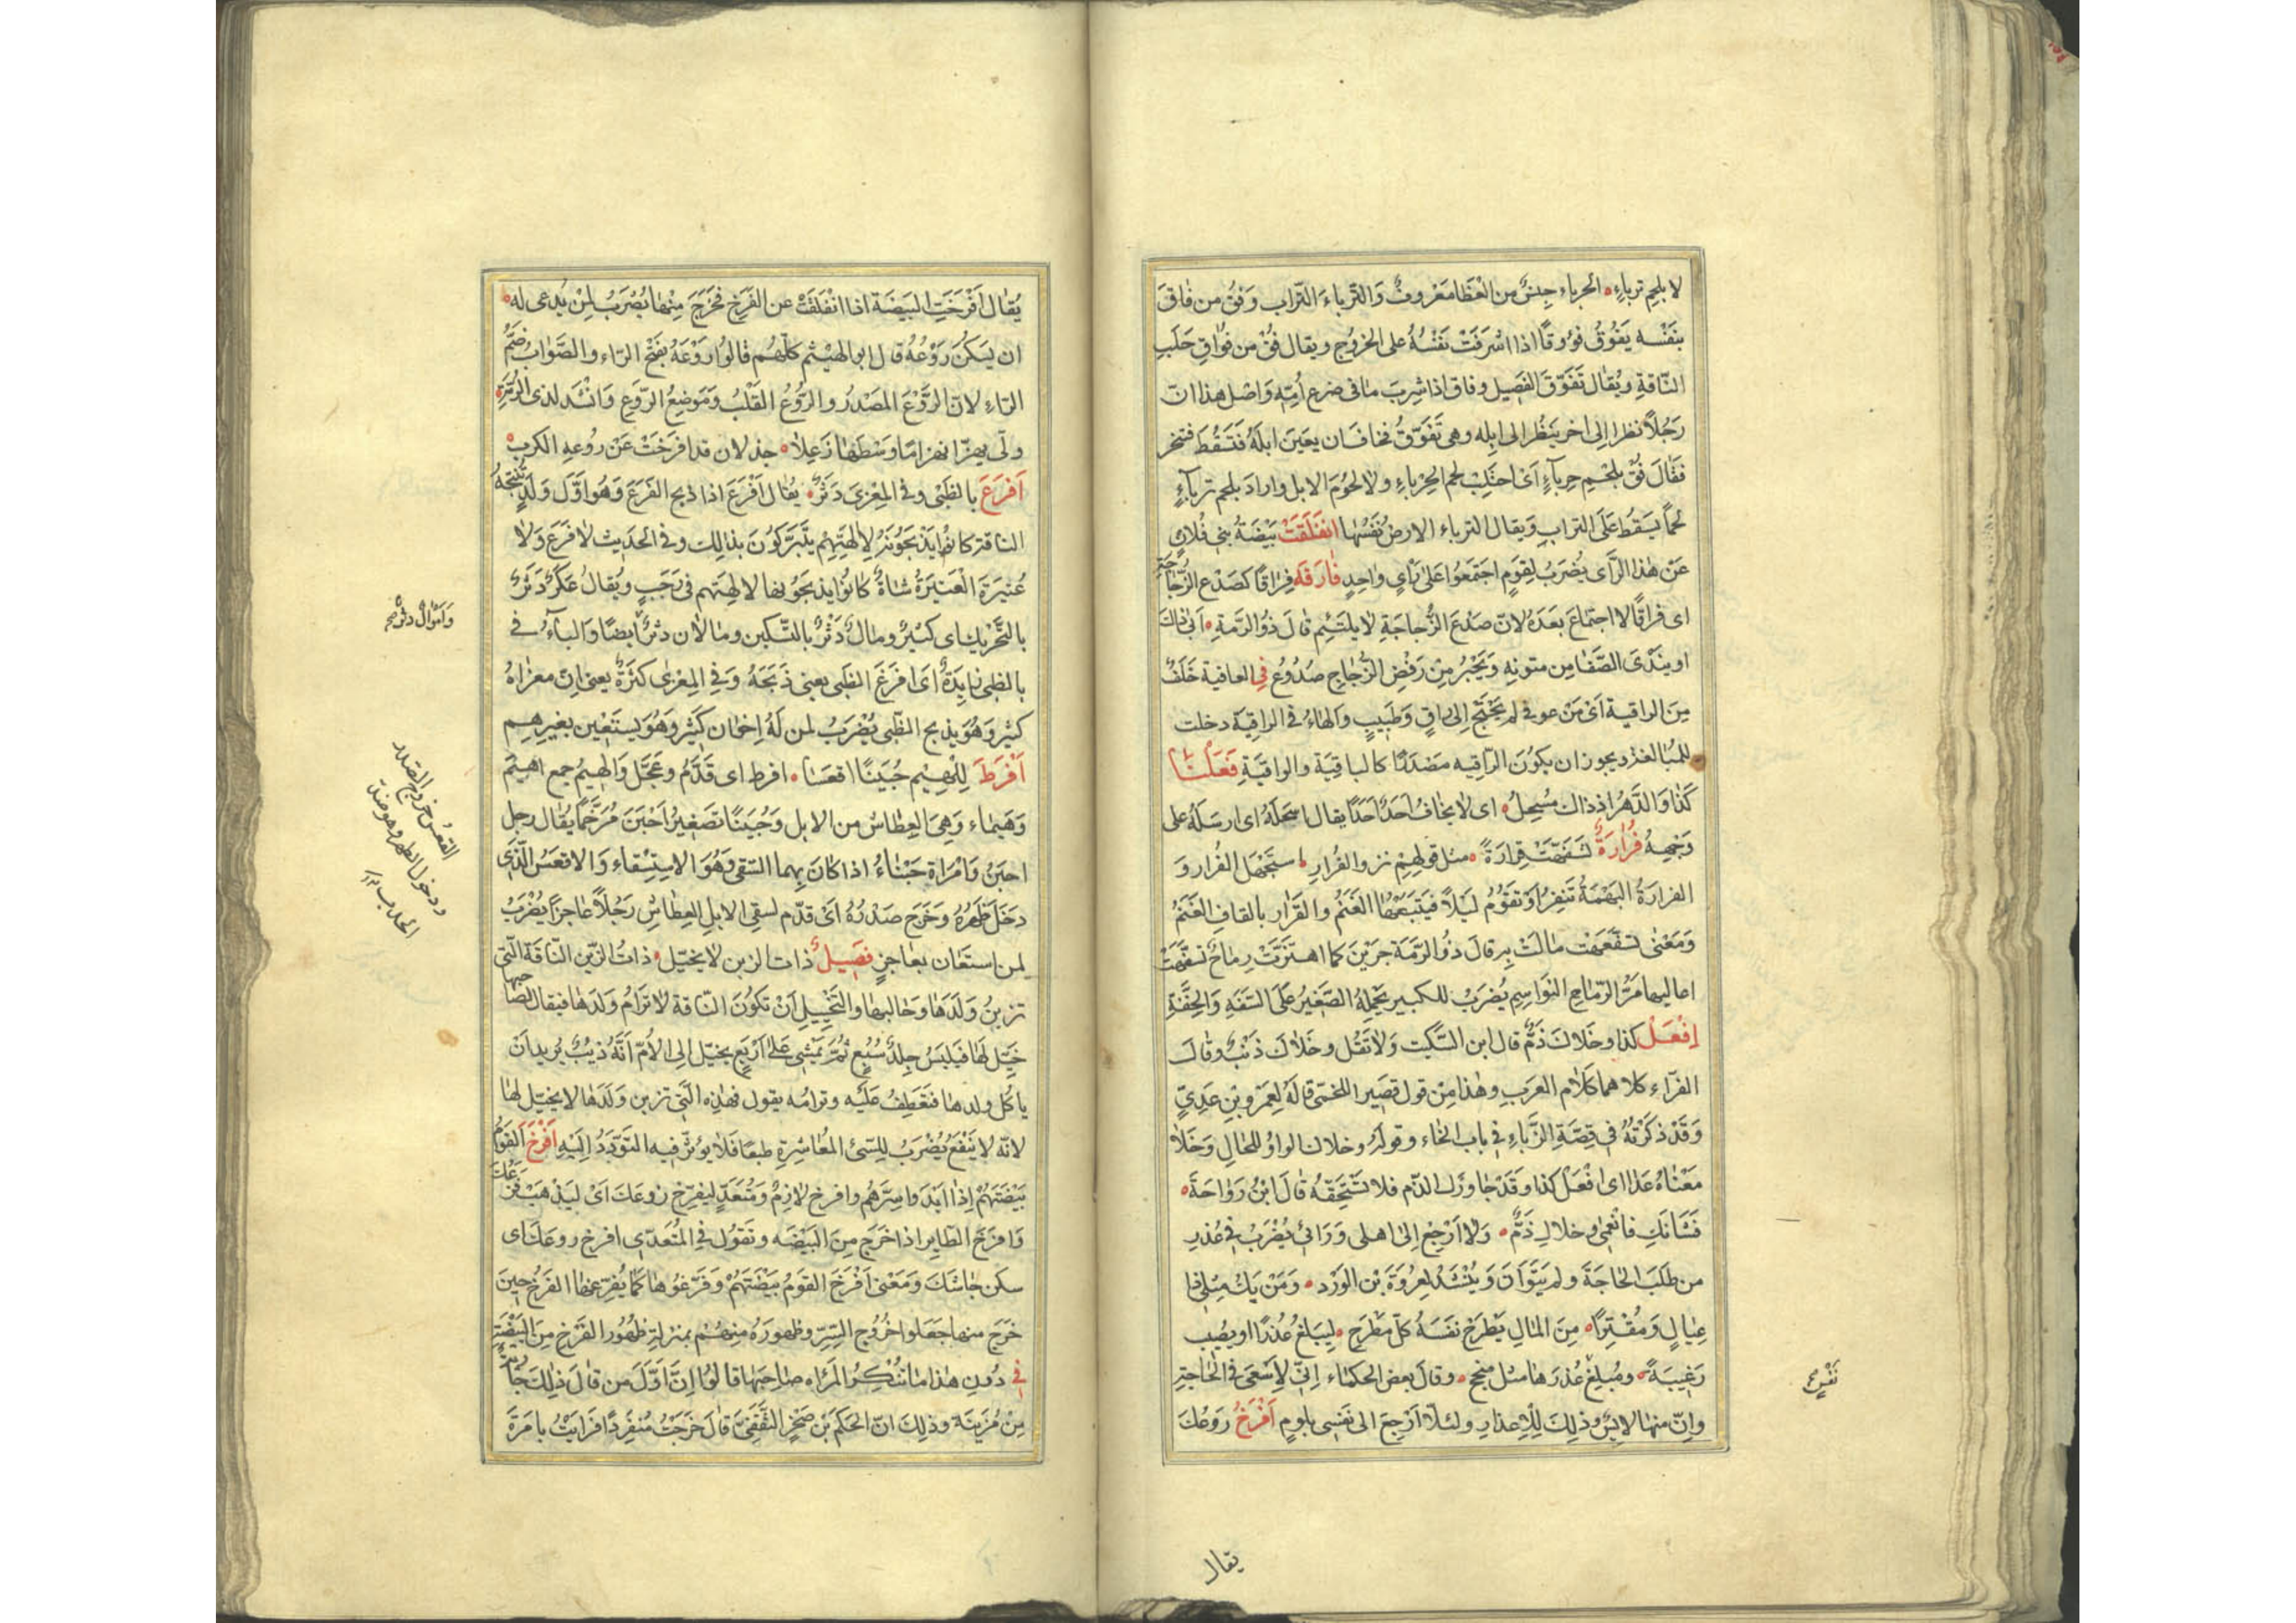 لا بلحِم ترباءٍ ۰ الحرباء جنسٌ من العظا معروفٌ وَالترباءَ التّراب وَفُق من فاقَ
بنفْسه يَفُوقُ فوُوقًا اذا اشرَفَتْ نَفْسُهُ على الخروج ويقال فُقْ من فُوَاقِ حَلَبِ
النّاقةِ ويُقال تَفَوّقَ الفَصِيل وفاق اذا شربَ ما فى ضرع اُمّهِ وَاصْل هذا انّ
رَجُلاً نظر اِلى اخر ينظُر الى ابِله وهى تَفَوّقُ فخاف ان يعِينَ ابلَهُ فَتَسْقُطَ فتنحر
فقَالَ فُقْ بلحْمِ حِرباءٍ اَى احتَلِبْ لحم الحِرْباءِ ولا لحُوُمَ الابل وارادَ بلحم ترباءٍ
لحمًا يَسقُط عَلَى الترابِ وَيقال الترباء الارضُ نَفْسُها انفَلَقَتْ بَيْضَةُ بنى فُلانٍ
عَنْ هٰذا الرَّاى يُضرَبُ لِقومٍ اجتمَعُوا عَلى رَأيٍ واحدٍ فارَقَه فِراقًا كصَدْع الزُّجَاجَةِ
اى فراقًا لا اجتماعَ بعَدَهُ لانّ صَدْعَ الزُّجاجَةِ لا يلتَئِم قالَ ذُو الرّمةِ ۰ اَبى ذاكَ
او ينَدْىَ الصّفَا مِن متونهِ وَيَجْبُرُ مِنْ رَفْضِ الزُّجَاجِ صَدُوعُ فى العافية خَلَفٌ
مِنَ الراقية اَىْ مَنْ عوفى لم يحْتَجْ اِلى رَاقٍ وَطَبيبٍ وَالهَاءُ فى الراقِيَة دخلت
للمُبالغة ويجوز ان يكوُنَ الرّاقيه مَصْدَرًا كالباقِيَةِ والواقيَةِ فَعَلتُ
كذا وَالدّهرُ اذ ذاكَ مُسْجِلٌ ۰ اى لا يخافُ اَحدٌ اَحَدًا يقال اسجَلهُ اى ارسَلهُ على
وَجْهِهِ فُرَارَةٌ تَسَفّهَتْ قِرارَةً ۰ مثل قولهِمْ نزو الفُرارِ استجْهَل الفُرار وَ
الفرارَةُ البَهْمَةُ تَنفِرُ اَوْ تقوُمُ لَيْلاً فَيتبَعُها الغَنَمُ والقَرَار بالقافِ الغَنَمُ
وَمَعْنى تسَفّهَت مالَتْ بهِ قالَ ذوُ الرّمَة جرَيْنَ كما اهتَزّتْ رِماحٌ تسفّهَتْ
اعاليها مَرُّ الرّياحِ النوَاسِمِ يُضرَبُ للكبير يحْمِلهُ الصّغيرُ عَلَى السّفَهِ وَالخِفّةِ
اِفْعَلْ كذا وخَلاكَ ذمٌّ قال ابن السّكيت وَلا تَقُل وخَلاكَ ذنبٌ وقالَ
الفرّاء كلاهما كَلام العرَبِ وهٰذا مِنْ قول قصَير اللخمّى قالَهُ لِعَمْروِ بنِ عَدِيٍّ
وَقَدْ ذكَرْتهُ فى قِصّةِ الزّبّاءِ فى باب الخاء وقولُه وخلاك الواوُ للحالِ وَخَلا
مَعْناهُ عَدَا اى افْعَلْ كذا وقَدْ جاوزَك الذّم فلا تستَحِقّهُ قالَ ابْنُ رَوَاحَةَ ۰
فَشَانكِ فانْعَمِى وخلاكِ ذمٌّ ۰ وَلا اَرْجِعْ اِلى اهلى وَرَائى يُضرَبُ فى عُذرِ
من طَلَبَ الحاجَةَ ولم يَتَوَانَ وَيُنْشَدُ لِعُروَةَ بْن الوَرْد ۰ وَمَنْ يَكُ مِثلى ذا
عِيالٍ وَمُقْتِرًا ۰ مِنَ المالِ يَطْرَحْ نفسَهُ كلّ مَطرَح ۰ لِيَبلغَ عُذرًا او يصُيب
رَغِيبَةً ۰ ومُبلغُ عُذرَها مثل منجح ۰ وقالَ بعض الحكماء اِنّى لاَسْعَى فى الحاجَةِ
وانّى منها لايِسٌ وذلِكَ لِلاِعذارِ ولئلّا اَرْجعَ الى نفسى بلومٍ اَفْرَخَ رَوعُكَ
نَفْسٍ
يقال
يُقال اَفْرَخَتِ البَيضَة اذا انْفلَقَتْ عن الفَرْخِ فخَرَجَ مِنْها يُضرَبُ لِمنْ يُدعى له ۰
ان يَسكُنَ رَوْعُهُ قال ابو الهَيْثم كلّهُم قالوُا رَوْعَهُ بفَتْح الرّاء والصَّوابُ ضَمُّ
الرّاءِ لانّ الرَّوْعَ المصْدرُ والرُّوعُ القَلبُ وَمَوضِعُ الرّوَعِ وَانشد لذى الرُّمّةِ ۰
ولّى يهزّ انهزامًا وَسْطهَا زعِلاً ۰ جذلان قد افرَخَتْ عَنْ رُوعهِ الكرَبُ ۰
اَفْرَعَ بالظَبْى وفى المِعْزىَ دَثرٌ ۰ يقُال اَفْرَعَ اذا ذبح الفَرَعَ وَهُوَ اوّل وَلَدٍ تُنتِجهُ
الناقة كانوُا يَذبحَوُنهُ لِاٰلهَتِهِم يتَبَرّكوُنَ بذلِك وفى الحَديث لا فَرَعَ وَلا
عُتيرَةَ الْعَتيَرةُ شاةٌ كانوُا يذبحَوُنها لاٰلهِتَهم فى رَجَبٍ ويُقالُ عَكَرٌ دَثَرٌ
بالتَّحْريك اى كثيرٌ ومالٌ دَثْرٌ بالتّسكين ومالان دثرٌ ايضًا وَالباءُ فى
بالظبى زايدَةٌ اى افرَعَ الظبى يعنى ذَبَحَهُ وَفى المِعْزى كثرَةٌ يعنى انّ معزاهُ
كثيرٌ وَهُوَ يذبح الظّبى يُضرَبُ لمن لَهُ اِخوان كَثيرٌ وَهُوَ يستَعْين بغيرِهِم
اَفْرَطَ لِلْهِيْمِ حُبَيْنًا اقعَسَ ۰ افرط اى قَدَّمَ وعَجَّل وَالهِيمُ جمع اهيَم
وَهَيمَاء وَهِىَ العِطاشُ من الابل وَحُبَينًا تصغِيرُ اَحْبَنَ مُرَخّمًا يُقال رجل
احبَنُ وَامْراة حَبْناءُ اذا كانَ بهما السَقى وَهُوَ الاِستسْقاء وَالاقعَسُ الّذى
دخَلَ ظَهرُهُ وخَرَجَ صَدْرُهُ اَىْ قدّم لسَقىِ الابلِ العِطاشِ رَجُلاً عاجزًا يُضْرَبُ
لمن استعَان بعَاجزٍ فصَيلُ ذات الزبن لا يخيّل ۰ ذاتُ الزّبن النّاقَة الّتى
تزبنُ وَلَدَها وحَالبها والتَخْييلُ اَنْ تكوُنَ النّاقة لا ترَامُ وَلدَها فيقال لصَاحبها
خَيّل لهَا فَيلبَسُ جلدَ سَبُعٍ ثمّ يَمشى عَلى اَرْبَعٍ يخيّل اِلى الاُمّ اَنّهُ ذِيبٌ يُريد اَنْ
ياكُل ولدها فتَعَطِفُ عَليْه وترامُه يقول فهٰذه الّتى تزبن وَلَدَها لا يخيّل لهَا
لانّه لا ينْفَعُ يُضْرَبُ لِلسّىئ المُعاشرَةِ طبعًا فلا يوثرّ فيه التوَدّدُ اِليْهِ اَفْرَخَ القَوْمُ
بَيْضَتَهُمْ اِذا ابْدَوا سِرَّهُم وافرخ لازمٌ وَمُتَعَدٍّ ليفرّخ رَوعَكَ اَىْ ليَذهَبْ فزعُك
وَافرَخَ الطّايِر اذا خرَجَ مِنَ البَيْضَه وتقوُل فى المُتعَدّى افرخ روعَكَ اى
سكن جاشكَ وَمَعْنى اَفْرَخَ القَومُ بَيضَتَهُمْ وَفَرّغُوها كمَا يُفَرّغها الفَرْخُ حِينَ
خَرَجَ منها جَعَلوا خُرُوج السِّرّ وظهورَهُ مِنهُم بمنزلةِ ظُهوُر الفَرْخِ مِنَ البَيْضَةِ
فى دُونِ هٰذا ما تنكِرُ المَرْاه صَاحِبَها قالوُا اِنّ اَوّلَ من قالَ ذلِكَ جاريَةٌ
مِنْ مُزَيْنَة وذلِكَ انّ الحكَم بْن صَخْرٍ الثّقَفِىَّ قالَ خرَجْتُ مُنفَرِدًا فرَايْتُ بامَرَةَ
وَاَموْالٌ دثرٌ صح
القعَسُ خروج الصّدر
ودخول الظهر وهو ضدّ
الحدب